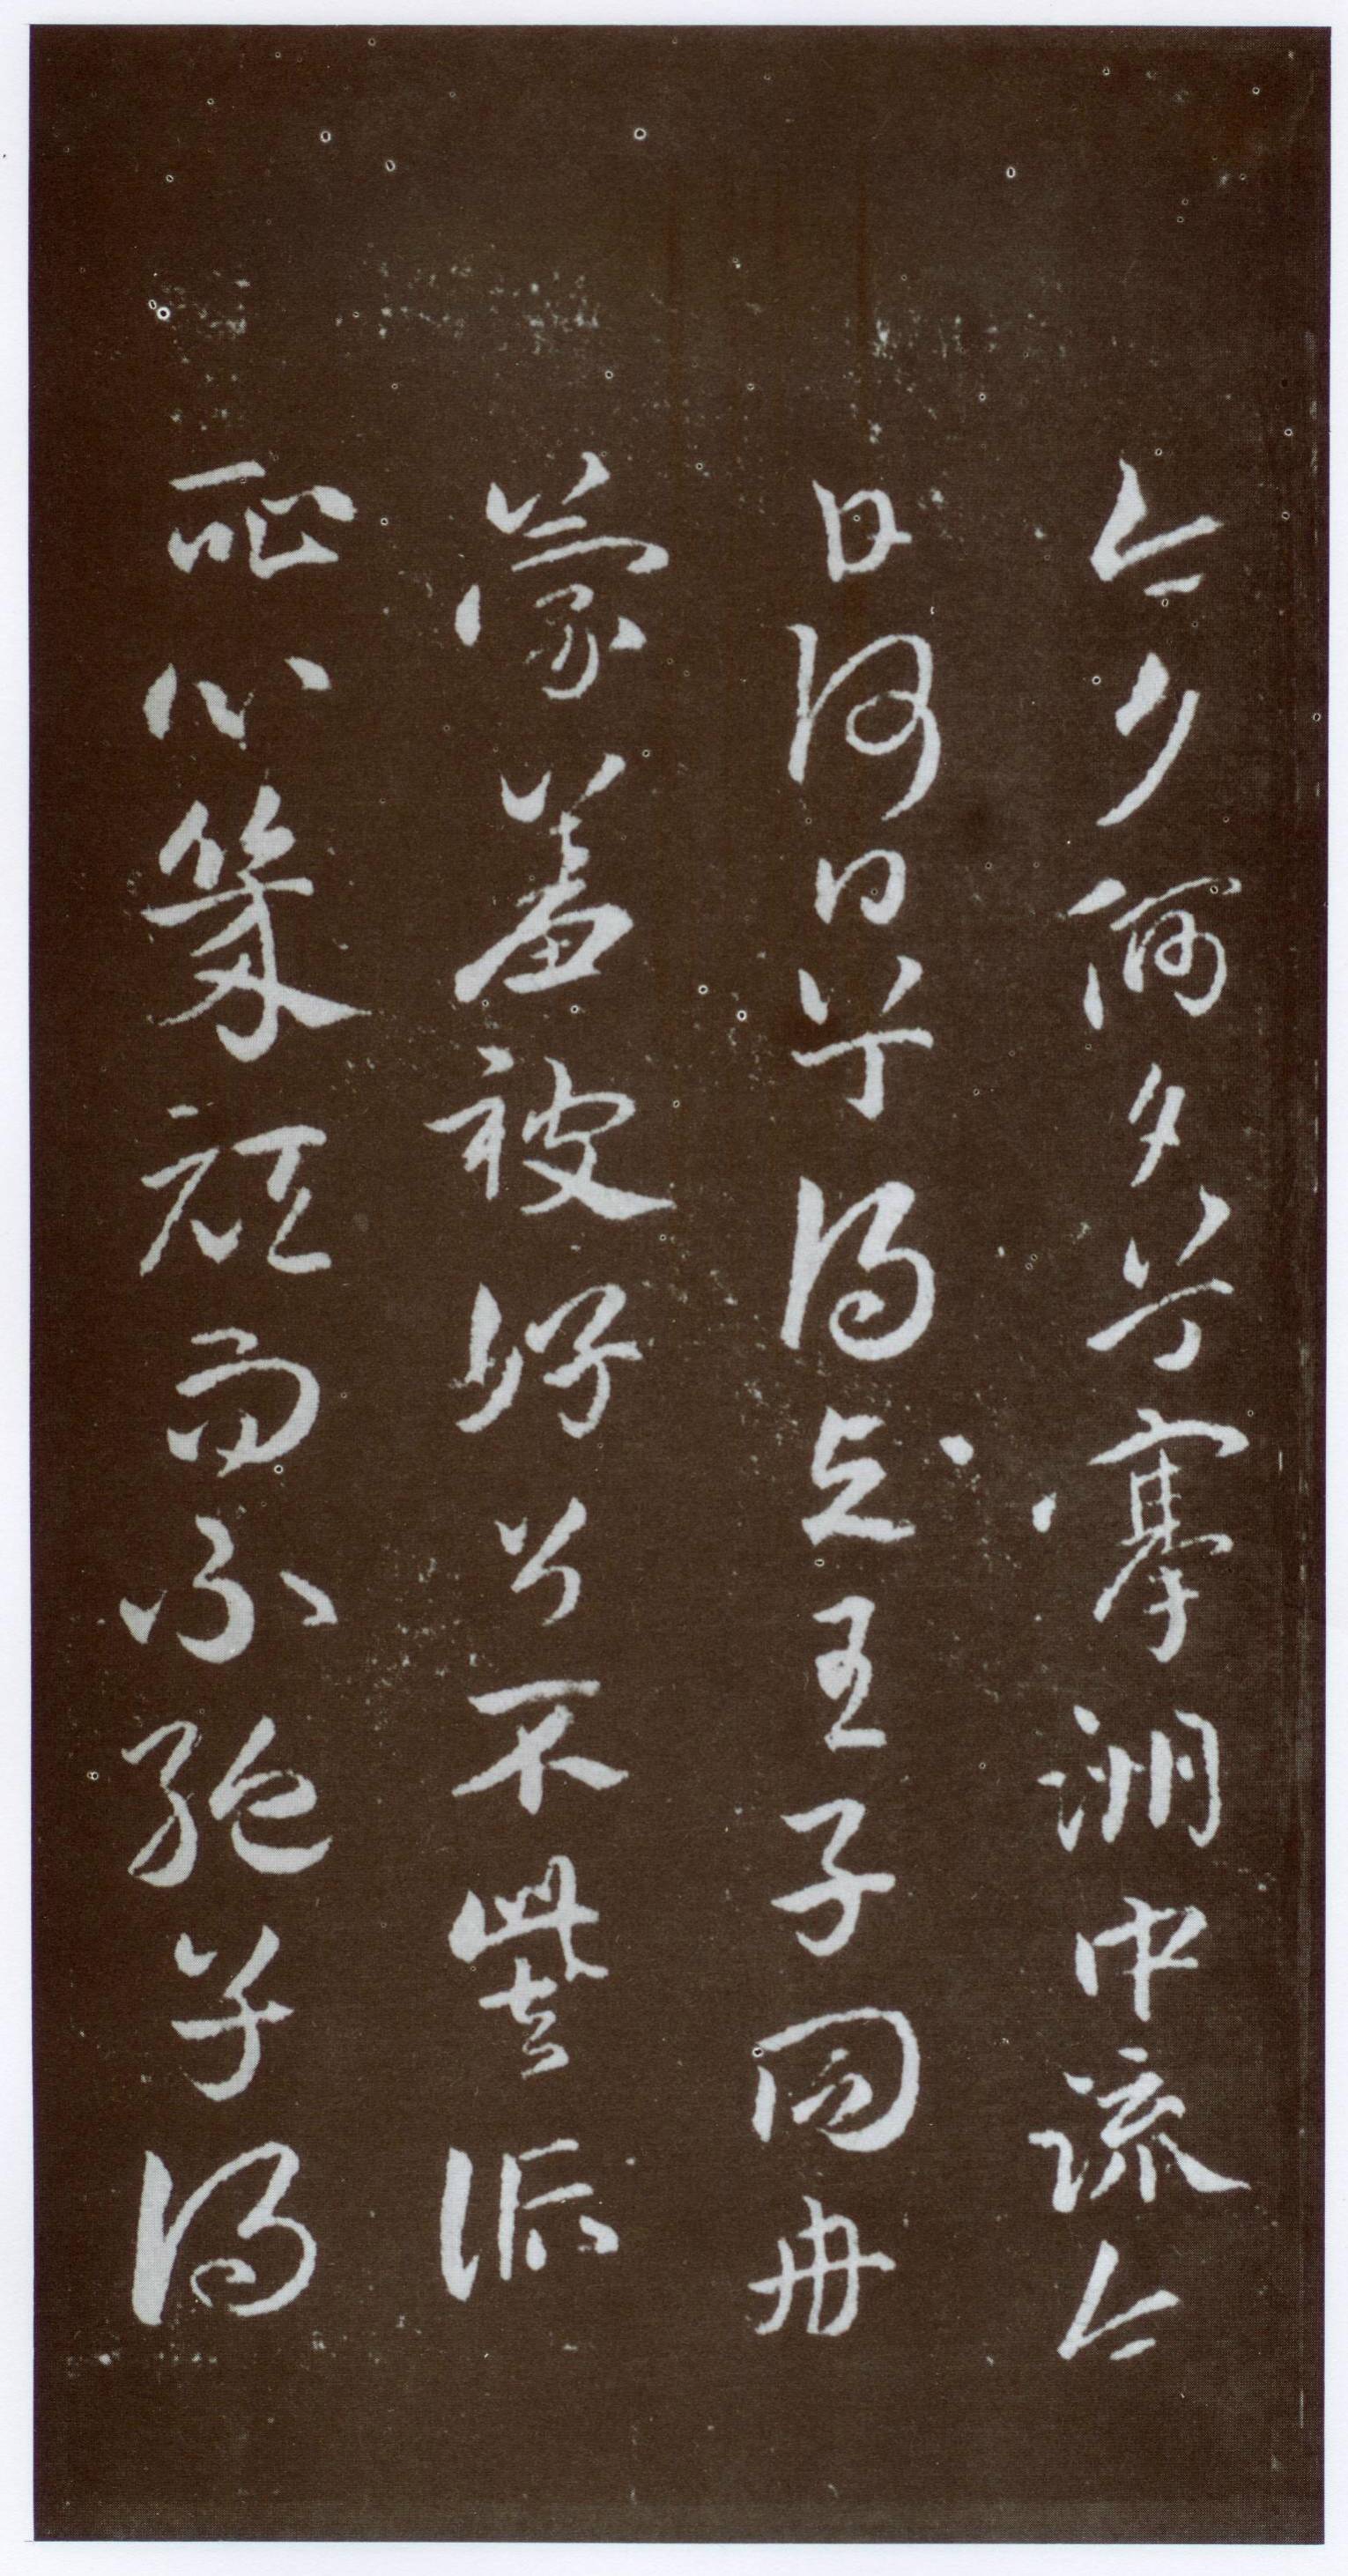 今夕何夕兮搴洲中流今
日何日兮得與王子同舟
蒙羞被好兮不訾詬
恥心幾頑而不絕兮得